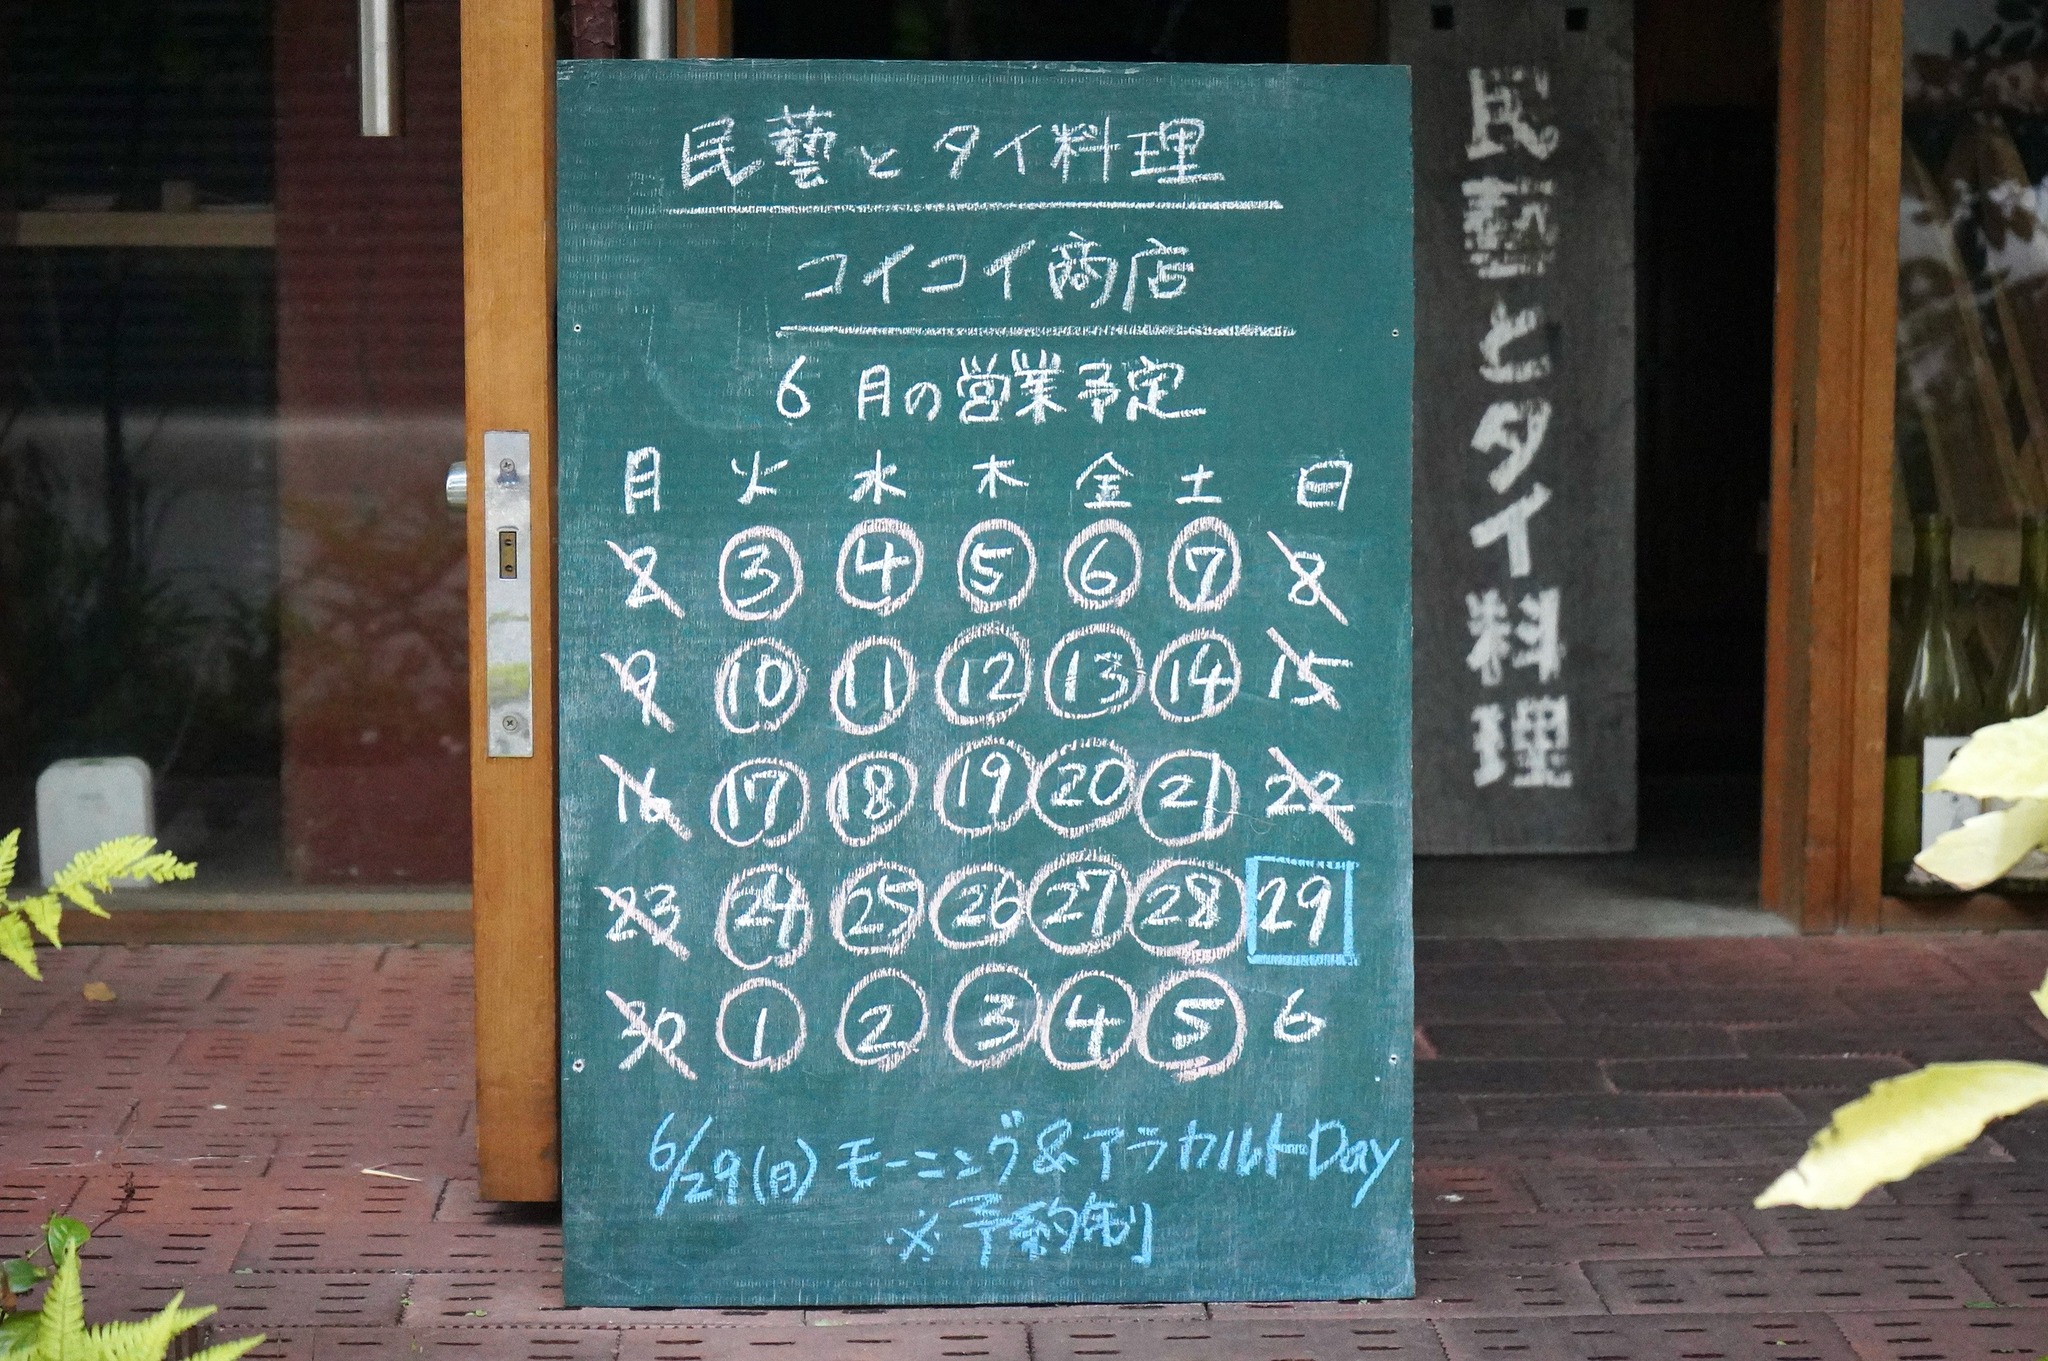 民藝とタイ料理
コイコイ商店
6月の営業予定
月 火 水 木 金 土 日
2 3 4 5 6 7 8
9 10 11 12 13 14 15
16 17 18 19 20 21 22
23 24 25 26 27 28 29
30 1 2 3 4 5 6
6/29(日) モーニング&アラカルトDay
※予約制
民藝とタイ料理